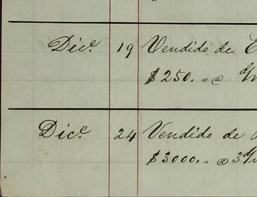 Dice. 19 Vendido de
$250. " @
Dice. 24 Vendido de
$3000. " @ 3